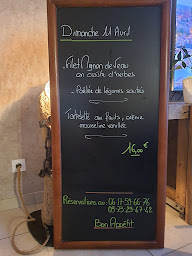 Dimanche 11 Avril
Filet Mignon de Veau
en croûte d'herbes
Poêlée de légumes sautés
Tartelette aux fruits, crème
mousseline vanillée
16,00€
Réservations au: 06-17-59-66-76
09-75-29-67-42
Bon Appétit